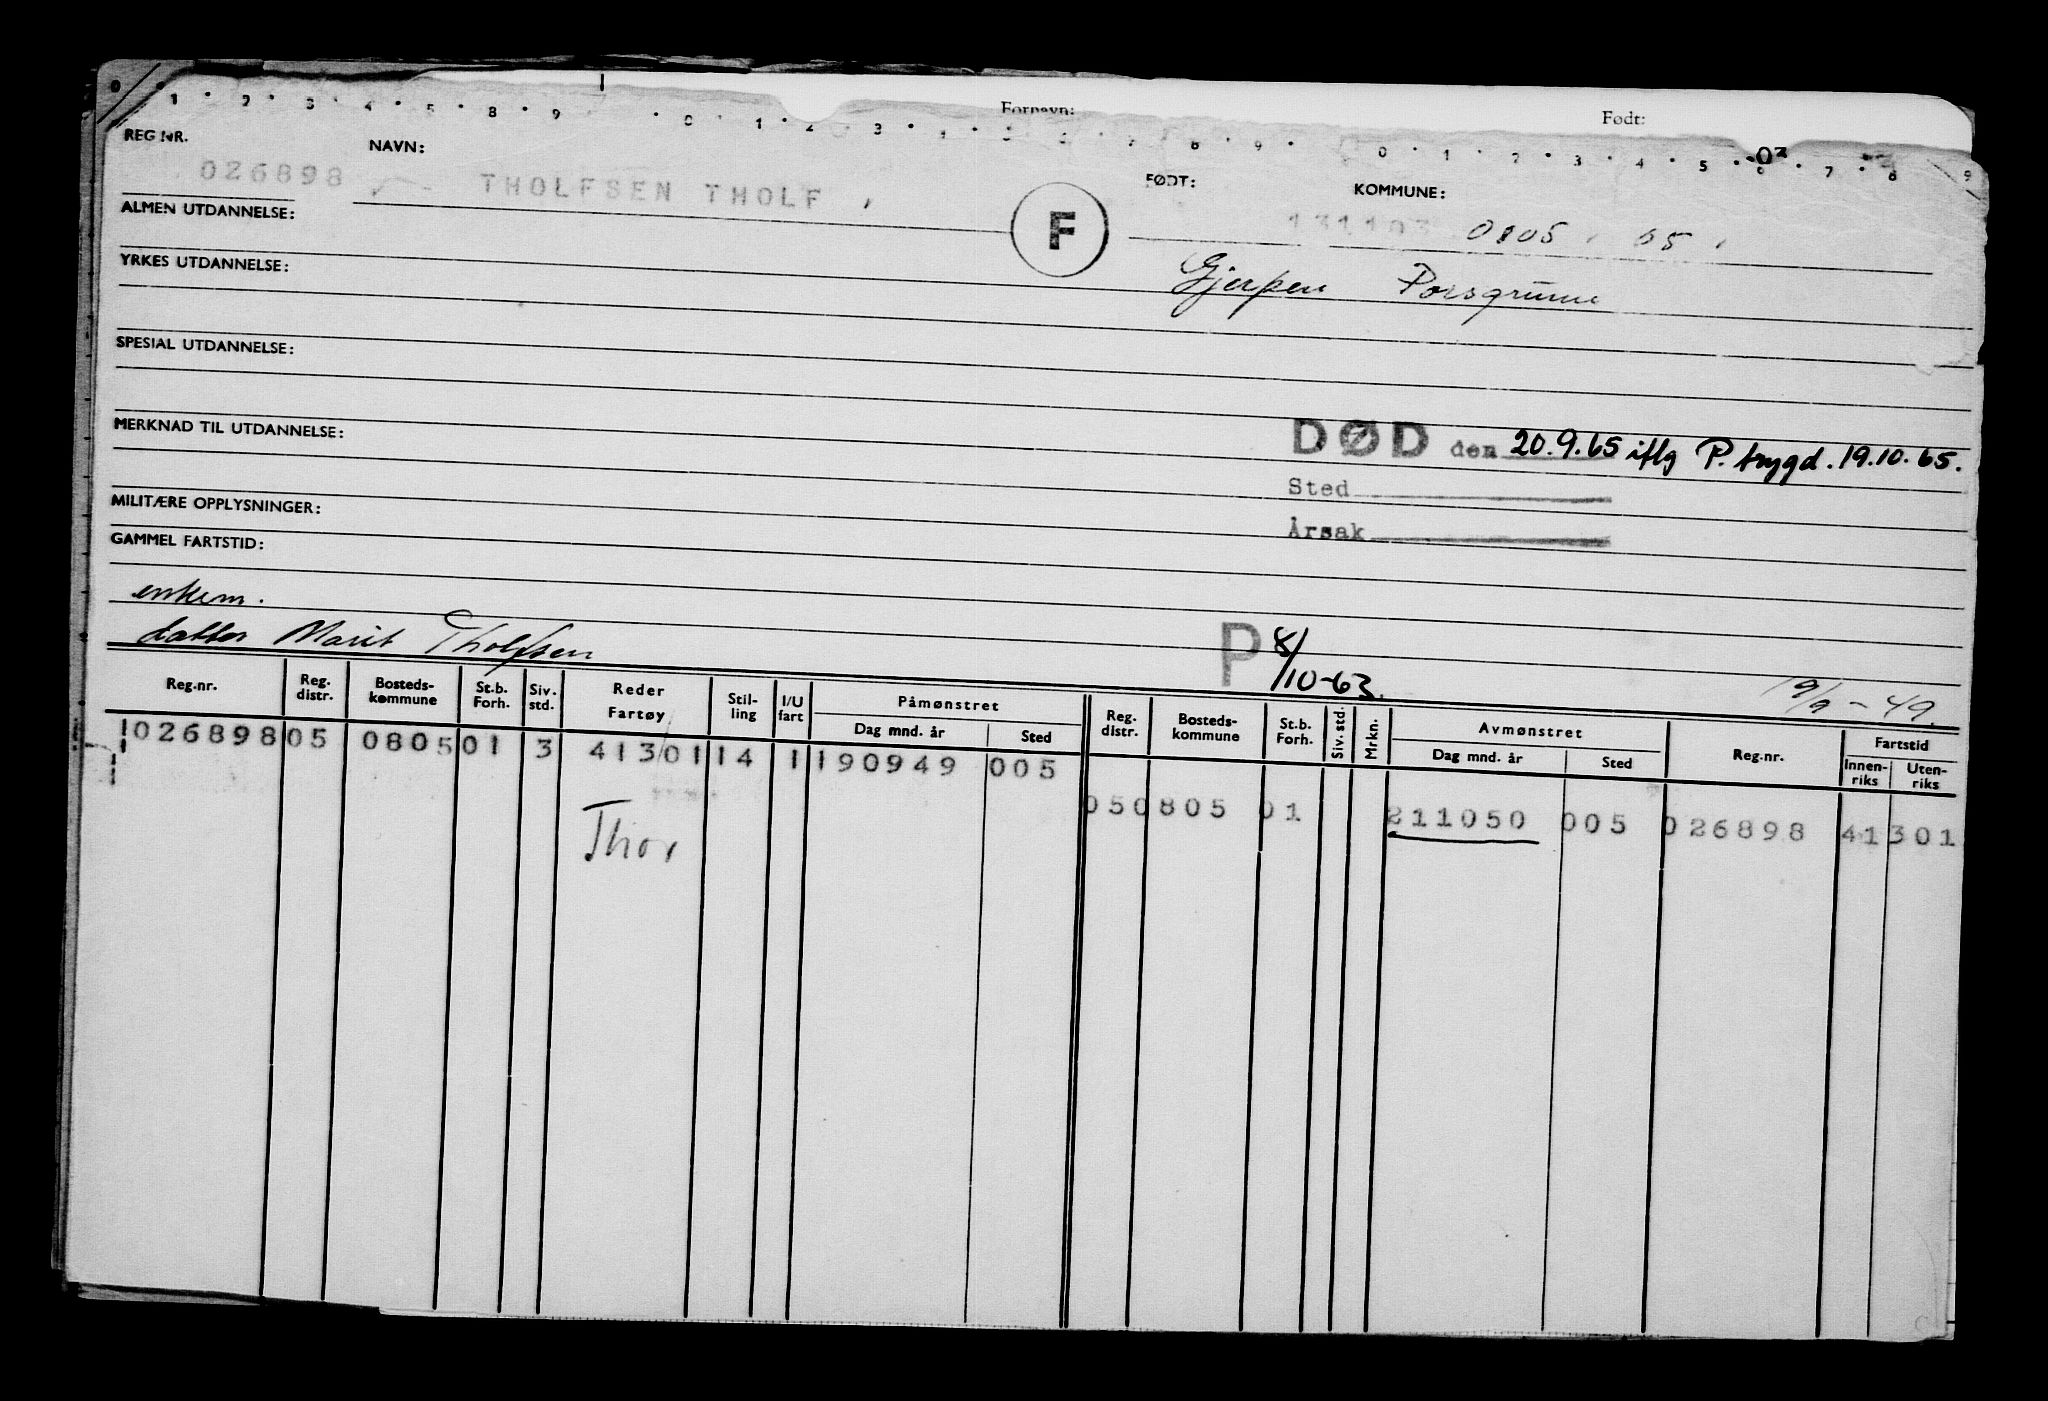 Fornavn: Født:
0 · 1 · 2 · 3 · 4 · 5 · 8 · 9 · 0 · 1 · 2 · 3 · 8 · 9 · 0 · 1 · 2 · 3 · 4 · 5 · 7 · 8 9
REG NR. NAVN: FØDT: KOMMUNE:
026898 THOLFSEN THOLF 131103 0805 65
ALMEN UTDANNELSE: F
YRKES UTDANNELSE: Gjerpen Porsgrunn
SPESIAL UTDANNELSE:
MERKNAD TIL UTDANNELSE: DØD den 20.9.65 iflg P. trygd. 19.10.65.
Sted
MILITÆRE OPPLYSNINGER:
Årsak
GAMMEL FARTSTID:
enkem.
datter Marit Tholfsen P 8/10-63. 19/9-49.
Reg.nr. Reg. distr. Bosteds-kommune St.b. Forh. Siv. std. Reder Fartøy Stil-ling I/U fart Påmønstret Dag mnd. år Sted Reg. distr. Bosteds-kommune St.b. Forh. Siv. std. Mrkn. Avmønstret Dag mnd. år Sted Reg.nr. Fartstid Innen-riks Uten-riks
026898 05 0805 01 3 41301 14 1 190949 005
05 0805 01 211050 005 026898 41301
Thor